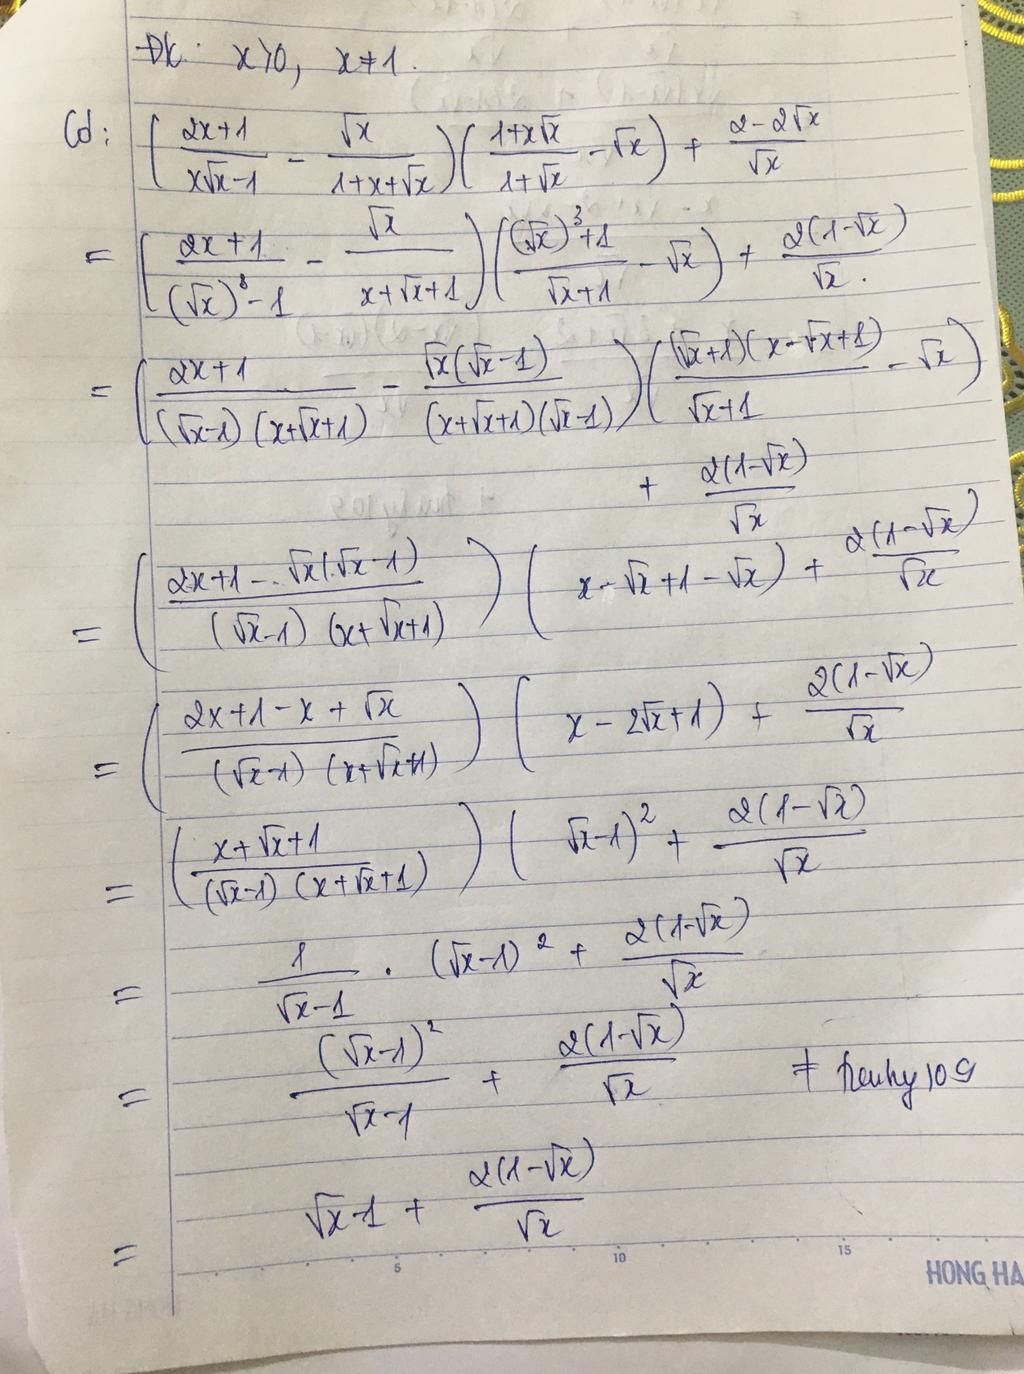 ĐK: x>0, x≠1.
Có: ( (2x+1)/(x√x-1) - √x/(1+x+√x) ) ( (1+x√x)/(1+√x) - √x ) + (2-2√x)/√x
= ( (2x+1)/((√x)³-1) - √x/(x+√x+1) ) ( ((√x)³+1)/(√x+1) - √x ) + 2(1-√x)/√x .
= ( (2x+1)/((√x-1)(x+√x+1)) - √x(√x-1)/((x+√x+1)(√x-1)) ) ( (√x+1)(x-√x+1)/(√x+1) - √x )
+ 2(1-√x)/√x
= ( (2x+1-√x(√x-1))/((√x-1)(x+√x+1)) ) ( x-√x+1-√x) + 2(1-√x)/√x
= ( (2x+1-x+√x)/((√x-1)(x+√x+1)) ) ( x-2√x+1) + 2(1-√x)/√x
= ( (x+√x+1)/((√x-1)(x+√x+1)) ) ( √x-1)² + 2(1-√x)/√x
= 1/(√x-1) . (√x-1)² + 2(1-√x)/√x
= (√x-1)²/(√x-1) + 2(1-√x)/√x
= √x-1 + 2(1-√x)/√x
5 10 15
HONG HA